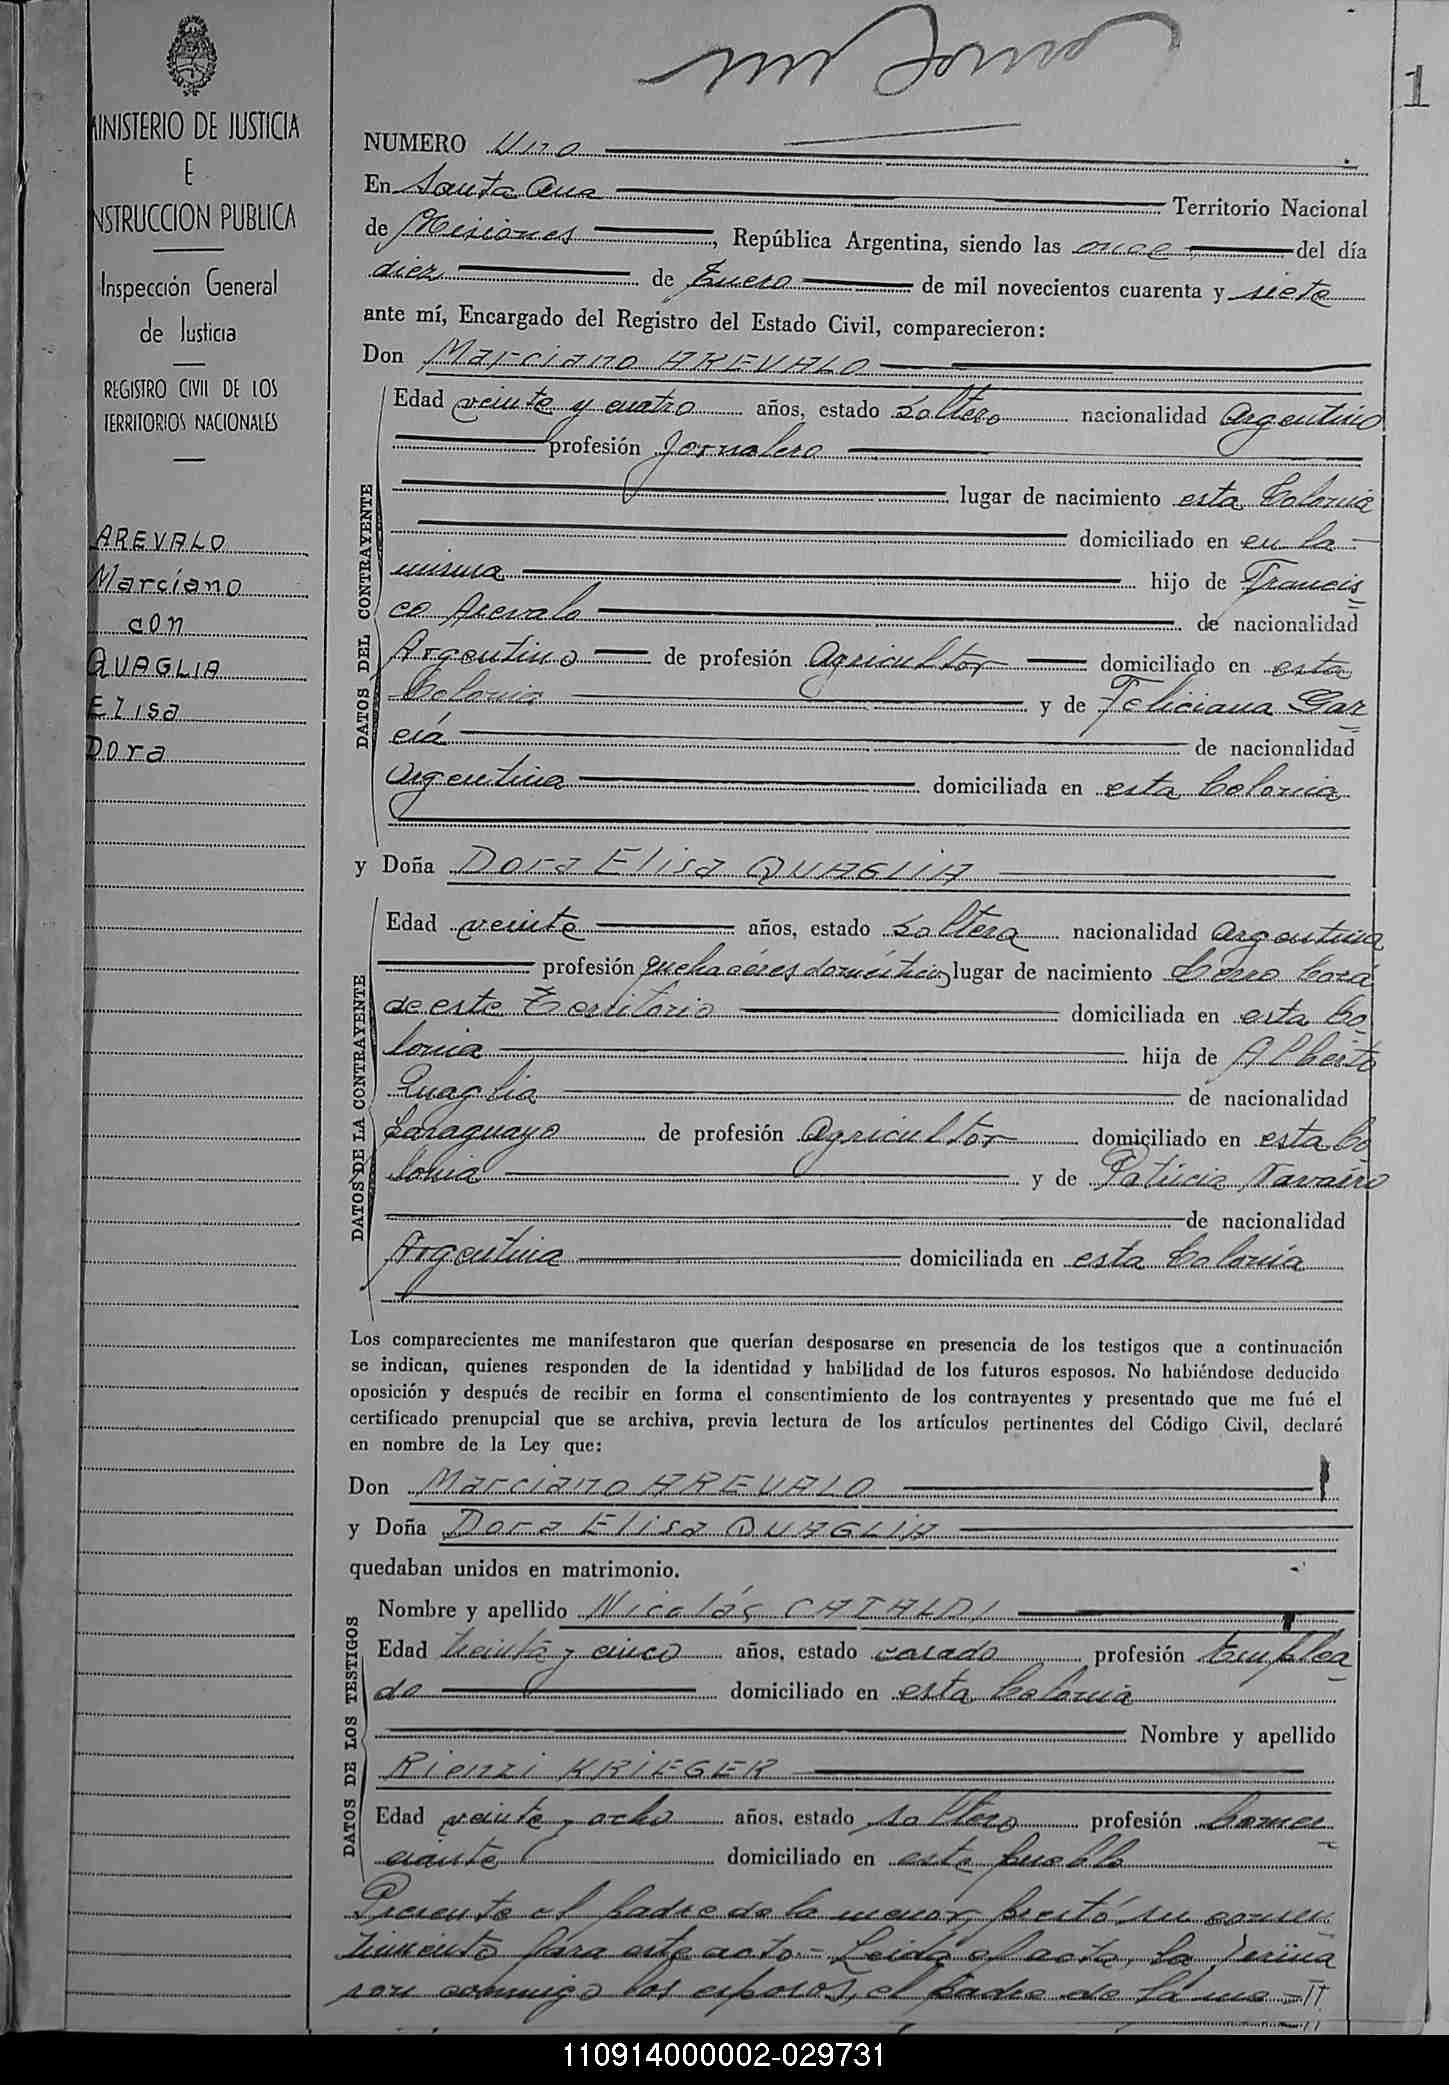 MINISTERIO DE JUSTICIA
E
INSTRUCCION PUBLICA
Inspección General
de Justicia
REGISTRO CIVIL DE LOS
TERRITORIOS NACIONALES
AREVALO
Marciano
con
QUAGLIA
Elisa
Dora
1
NUMERO Uno
En Santa Ana Territorio Nacional
de Misiones, República Argentina, siendo las once del día
diez de Enero de mil novecientos cuarenta y siete
ante mí, Encargado del Registro del Estado Civil, comparecieron:
Don Marciano AREVALO
DATOS DEL CONTRAYENTE
Edad veinte y cuatro años, estado soltero nacionalidad Argentino
profesión Jornalero
lugar de nacimiento esta Colonia
domiciliado en en la
misma hijo de Francis
co Arevalo de nacionalidad
Argentino de profesión Agricultor domiciliado en esta
Colonia y de Feliciana Gar
cía de nacionalidad
Argentina domiciliada en esta Colonia
y Doña Dora Elisa QUAGLIA
DATOS DE LA CONTRAYENTE
Edad veinte años, estado soltera nacionalidad argentina
profesión quehaceres domésticos lugar de nacimiento Cerro Corá
de este Territorio domiciliada en esta Co
lonia hija de Alberto
Quaglia de nacionalidad
Paraguayo de profesión Agricultor domiciliado en esta Co
lonia y de Patricia Navarro
de nacionalidad
Argentina domiciliada en esta Colonia
Los comparecientes me manifestaron que querían desposarse en presencia de los testigos que a continuación
se indican, quienes responden de la identidad y habilidad de los futuros esposos. No habiéndose deducido
oposición y después de recibir en forma el consentimiento de los contrayentes y presentado que me fué el
certificado prenupcial que se archiva, previa lectura de los artículos pertinentes del Código Civil, declaré
en nombre de la Ley que:
Don Marciano AREVALO
y Doña Dora Elisa QUAGLIA
quedaban unidos en matrimonio.
DATOS DE LOS TESTIGOS
Nombre y apellido Nicolás CATALDI
Edad treinta y cinco años, estado casado profesión Emplea
do domiciliado en esta Colonia
Nombre y apellido
Rienzi KRIEGER
Edad veinte y ocho años, estado soltero profesión Comer
ciante domiciliado en este pueblo
Presente el padre de la menor, prestó su consen
timiento para este acto = Leida el acta, la firma
ron conmigo los esposos, el padre de la me =//
110914000002-029731